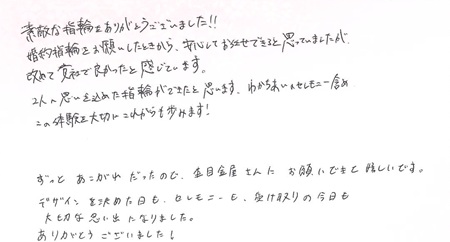 素敵な指輪をありがとうございました!!
婚約指輪をお願いしたときから、安心してお任せできると思っていましたが、
改めて貴社で良かったと感じています。
2人の思いを込めた指輪ができたと思います。わかちあいのセレモニー含め
この体験を大切にこれからも歩みます!
ずっと あこがれ だったので、杢目金屋 さんに お願いできて 嬉しいです。
デザインを決めた日も、セレモニーも、受け取りの今日も
大切な思い出になりました。
ありがとう ございました!